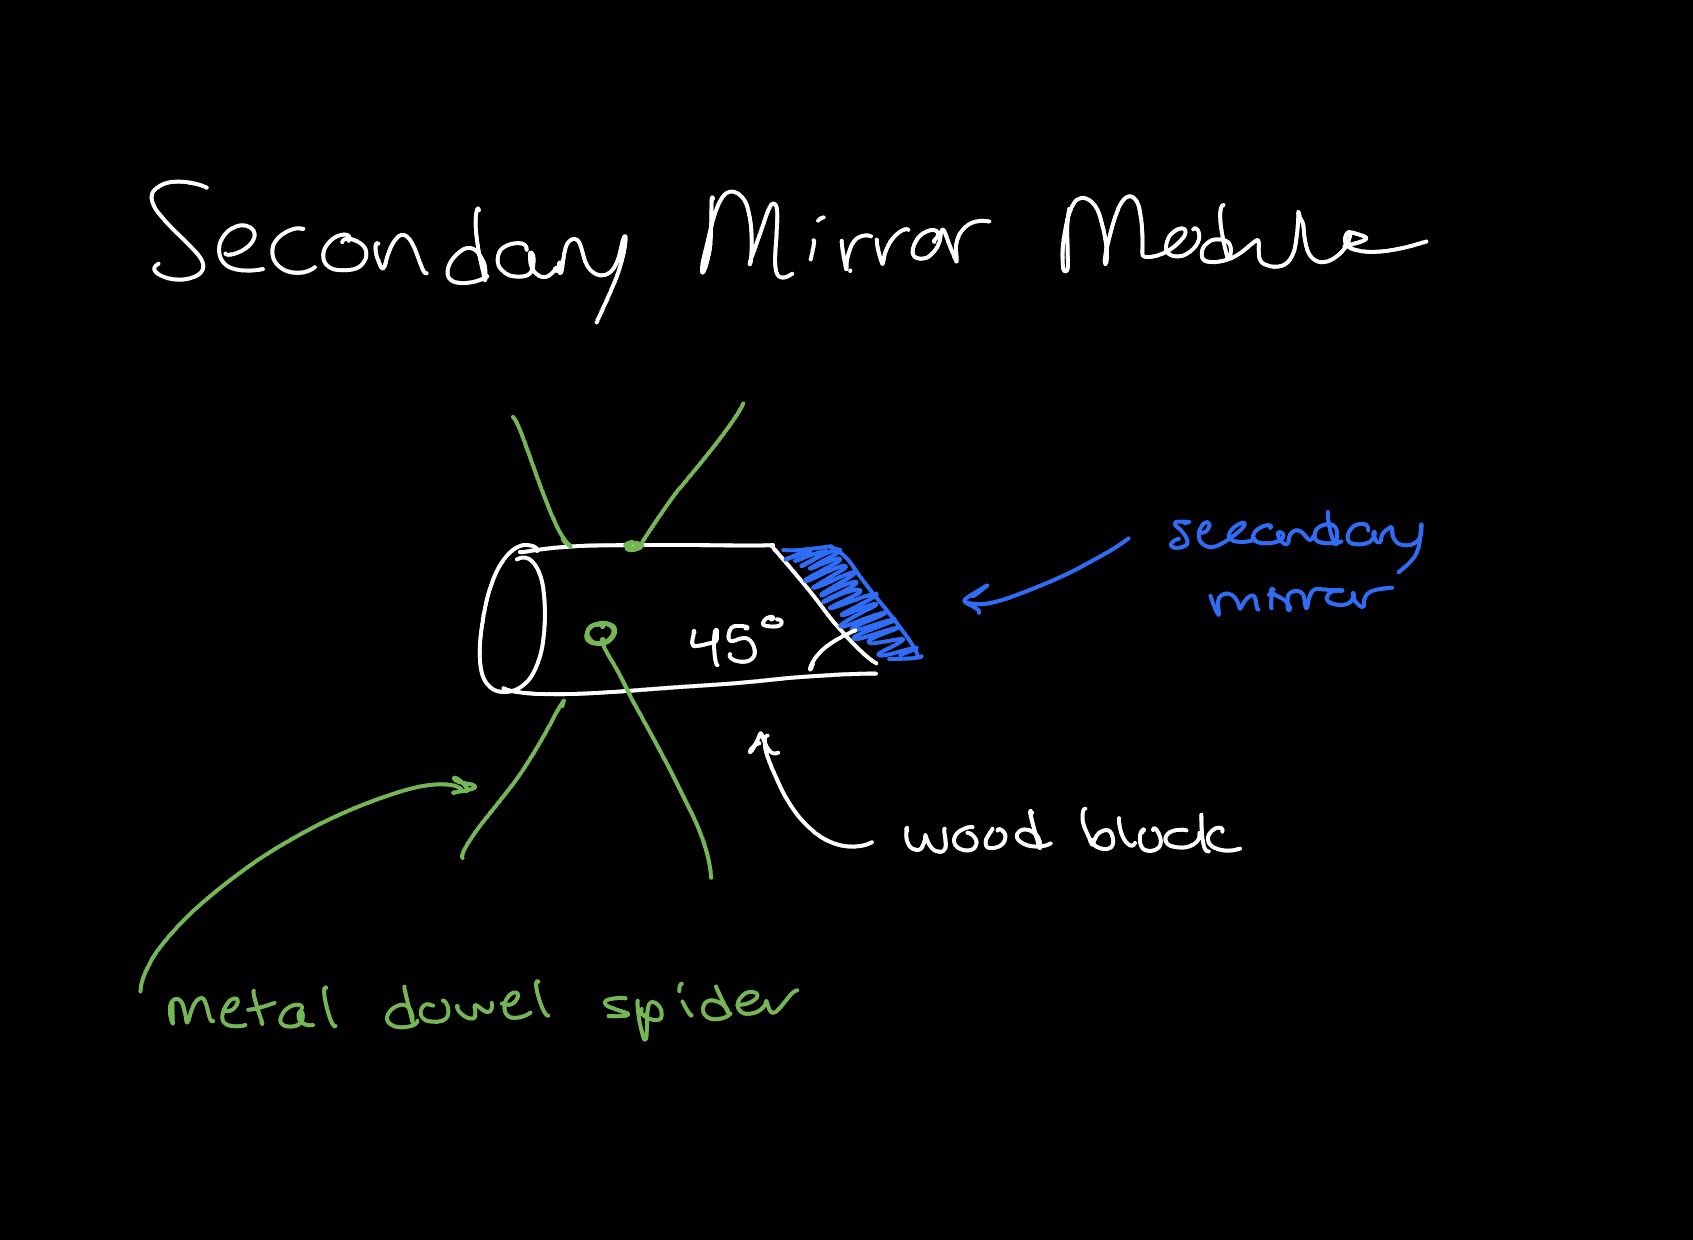 Secondary Mirror Module
secondary
mirror
45°
wood block
metal dowel spider